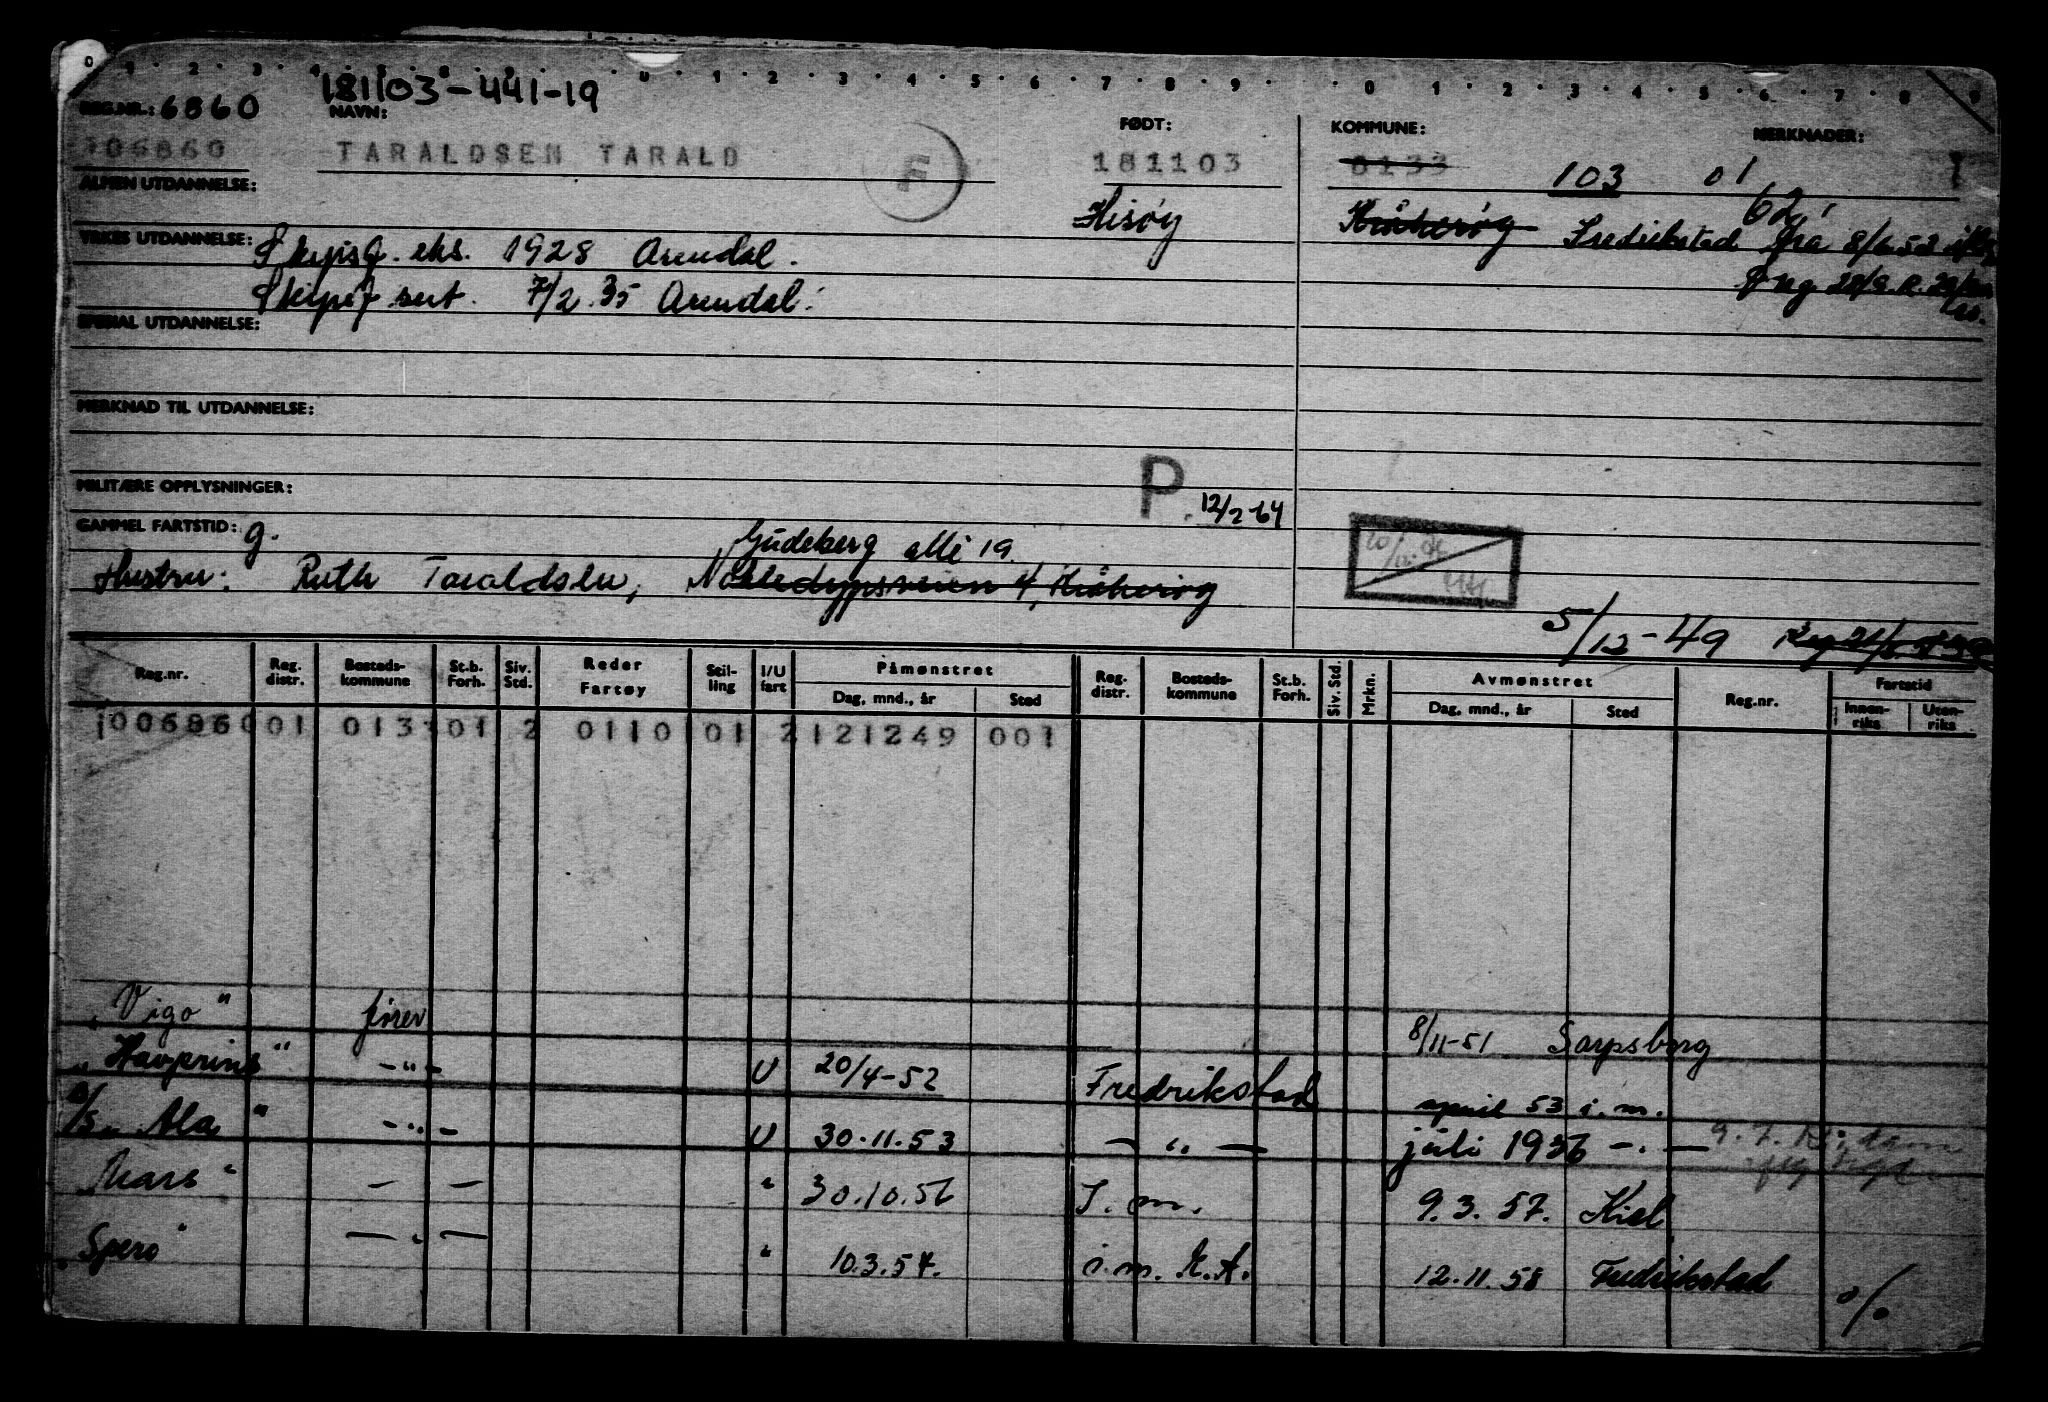 0 1 2 3 4 0 1 2 3 4 5 6 7 8 9 0 1 2 3 4 5 6 7 8 9
REG.NR.: 6860 181103-441-19
NAVN: FØDT: KOMMUNE: MERKNADER:
106860 TARALDSEN TARALD F 181103 0133 103 01 I
ALMEN UTDANNELSE: Hisøy Kråkerøy Fredrikstad fra 8/6 53
62
YRKES UTDANNELSE: Skipsf. eks. 1928 Arendal.
Skipsf sert. 7/2.35 Arendal.
SPESIAL UTDANNELSE:
MERKNAD TIL UTDANNELSE:
MILITÆRE OPPLYSNINGER: P. 12/2-64
GAMMEL FARTSTID: g.
Gudeberg allé 19.
Hustru: Ruth Taraldsen, 4, Kråkerøy
5/12-49
Reg.nr. Reg. distr. Bosteds-kommune St.b. Forh. Siv. Std. Reder Fartøy Stil-ling I/U fart Påmønstret Dag, mnd., år Sted Reg. distr. Bosteds-kommune St.b. Forh. Siv. Std. Mrkn. Avmønstret Dag, mnd., år Sted Reg.nr. Fartstid Innen-riks Uten-riks
1006860 01 0133 01 2 0110 01 2 121249 001
"Vigo" fører 8/11-51 Sarpsborg
"Havprins" -"- U 20/4-52 Fredrikstad april 53 i.m.
D/S "Ala" -"- U 30.11.53 -"- juli 1956 -"-
"Mars" -"- " 30.10.56 I.m. 9.3.57. Kiel
"Spero" -"- " 10.3.57. i.m. K.A. 12.11.58 Fredrikstad %